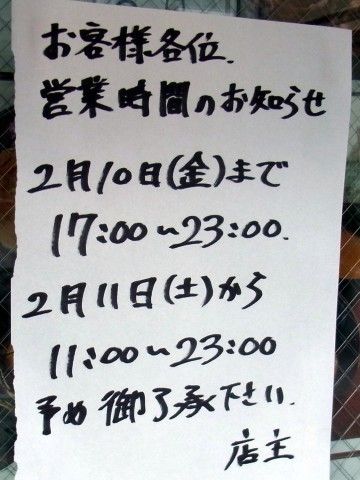 お客様各位.
営業時間のお知らせ
2月10日(金)まで
17:00〜23:00.
2月11日(土)から
11:00〜23:00
予め御了承下さい.
店主